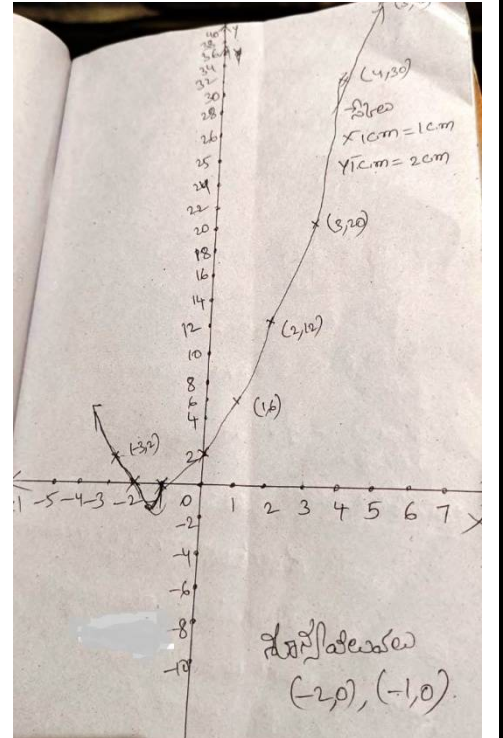 Y
36
34
32
30
28
26
25
24
22
20
18
16
14
12
10
8
6
4
2
(4,30)
X 1cm = 1cm
Y 1cm = 2cm
(3,20)
(2,12)
(1,6)
(-3,2)
-5 -4 -3 -2 -1 0 1 2 3 4 5 6 7 X
-2
-4
-6
-8
-10
(-2,0), (-1,0).